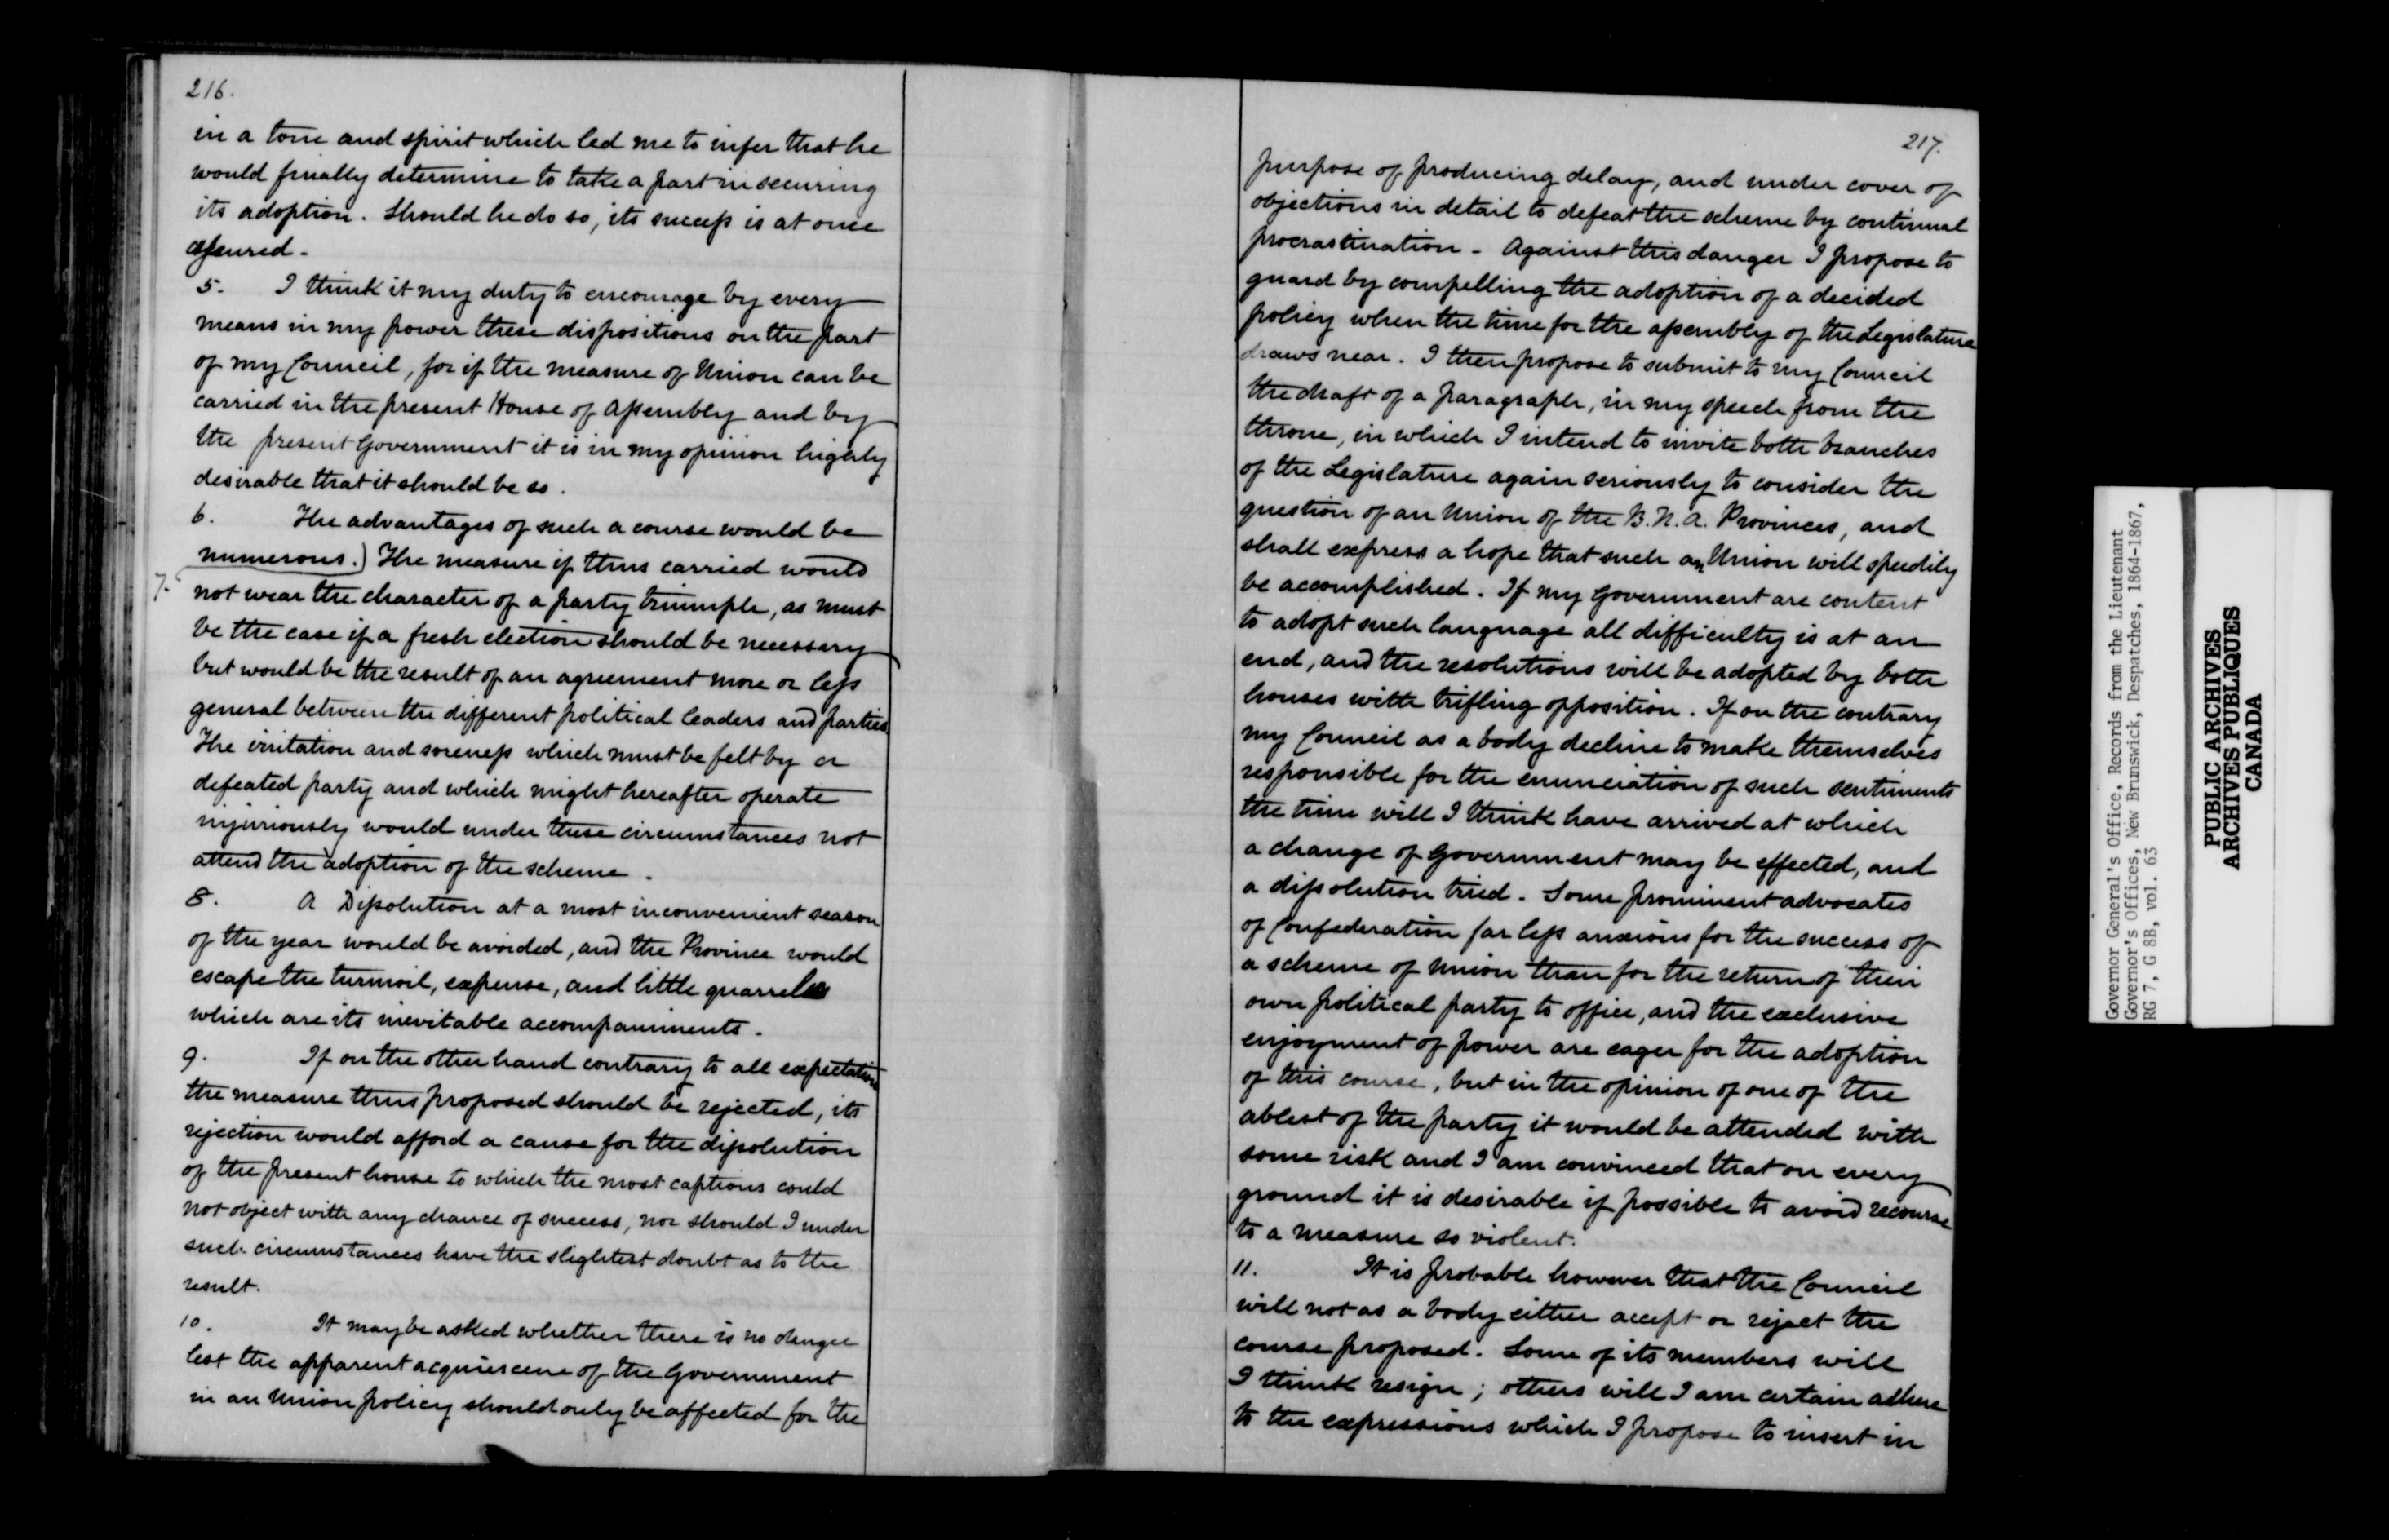 216.
in a tone and spirit which led me to infer that he
would finally determine to take a part in securing
its adoption. Should he do so, its success is at once
assured -
5. I think it my duty to encourage by every
means in my power these dispositions on the part
of my Council, for if the measure of Union can be
carried in the present House of Assembly and by
the present Government it is in my opinion highly
desirable that it should be so.
6. The advantages of such a course would be
numerous.) The measure if thus carried would
7. not wear the character of a party triumph, as must
be the case if a fresh election should be necessary
but would be the result of an agreement more or less
general between the different political leaders and parties
The irritation and soreness which must be felt by a
defeated party and which might hereafter operate
injuriously would under these circumstances not
attend the adoption of the scheme.
8. A Dissolution at a most inconvenient season
of the year would be avoided, and the Province would
escape the turmoil, expense, and little quarrels
which are its inevitable accompaniments.
9. If on the other hand contrary to all expectation
the measure thus proposed should be rejected, its
rejection would afford a cause for the dissolution
of the present house to which the most captious could
not object with any chance of success, nor should I under
such circumstances have the slightest doubt as to the
result.
10. It may be asked whether there is no danger
lest the apparent acquiescence of the Government
in an Union policy should only be affected for the
217.
purpose of producing delay, and under cover of
objections in detail to defeat the scheme by continual
procrastination - Against this danger I propose to
guard by compelling the adoption of a decided
policy when the time for the assembly of the Legislature
draws near. I then propose to submit to my Council
the draft of a paragraph, in my speech from the
throne, in which I intend to invite both branches
of the Legislature again seriously to consider the
question of an Union of the B.N.A. Provinces, and
shall express a hope that such an Union will speedily
be accomplished. If my Government are content
to adopt such language all difficulty is at an
end, and the resolutions will be adopted by both
houses with trifling opposition. If on the contrary
my Council as a body decline to make themselves
responsible for the enunciation of such sentiments
the time will I think have arrived at which
a change of Government may be effected, and
a dissolution tried. Some prominent advocates
of Confederation far less anxious for the success of
a scheme of Union than for the return of their
own political party to office, and the exclusive
enjoyment of power are eager for the adoption
of this course, but in the opinion of one of the
ablest of the party it would be attended with
some risk and I am convinced that on every
ground it is desirable if possible to avoid recourse
to a measure so violent.
11. It is probable however that the Council
will not as a body either accept or reject the
course proposed. Some of its members will
I think resign; others will I am certain adhere
to the expressions which I propose to insert in
Governor General's Office, Records from the Lieutenant
Governor's Offices, New Brunswick, Despatches, 1864-1867,
RG 7, G 8B, vol. 63
PUBLIC ARCHIVES
ARCHIVES PUBLIQUES
CANADA